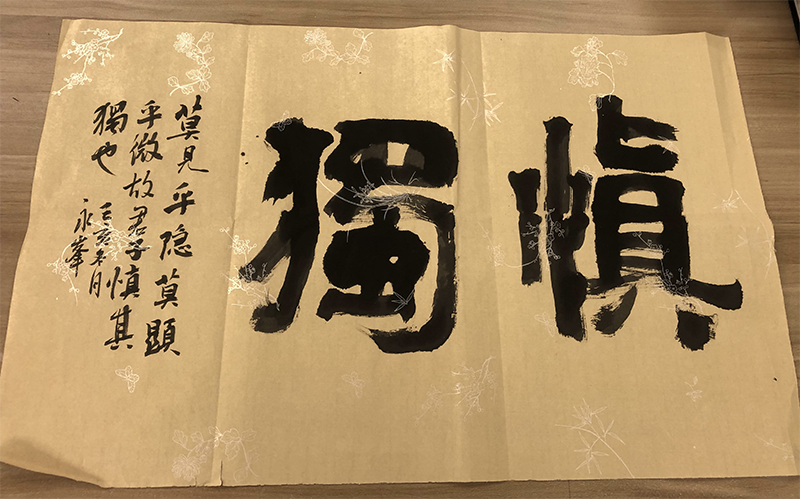 慎獨
莫見乎隐莫顯
乎微故君子慎其
獨也
己亥年月
永峯